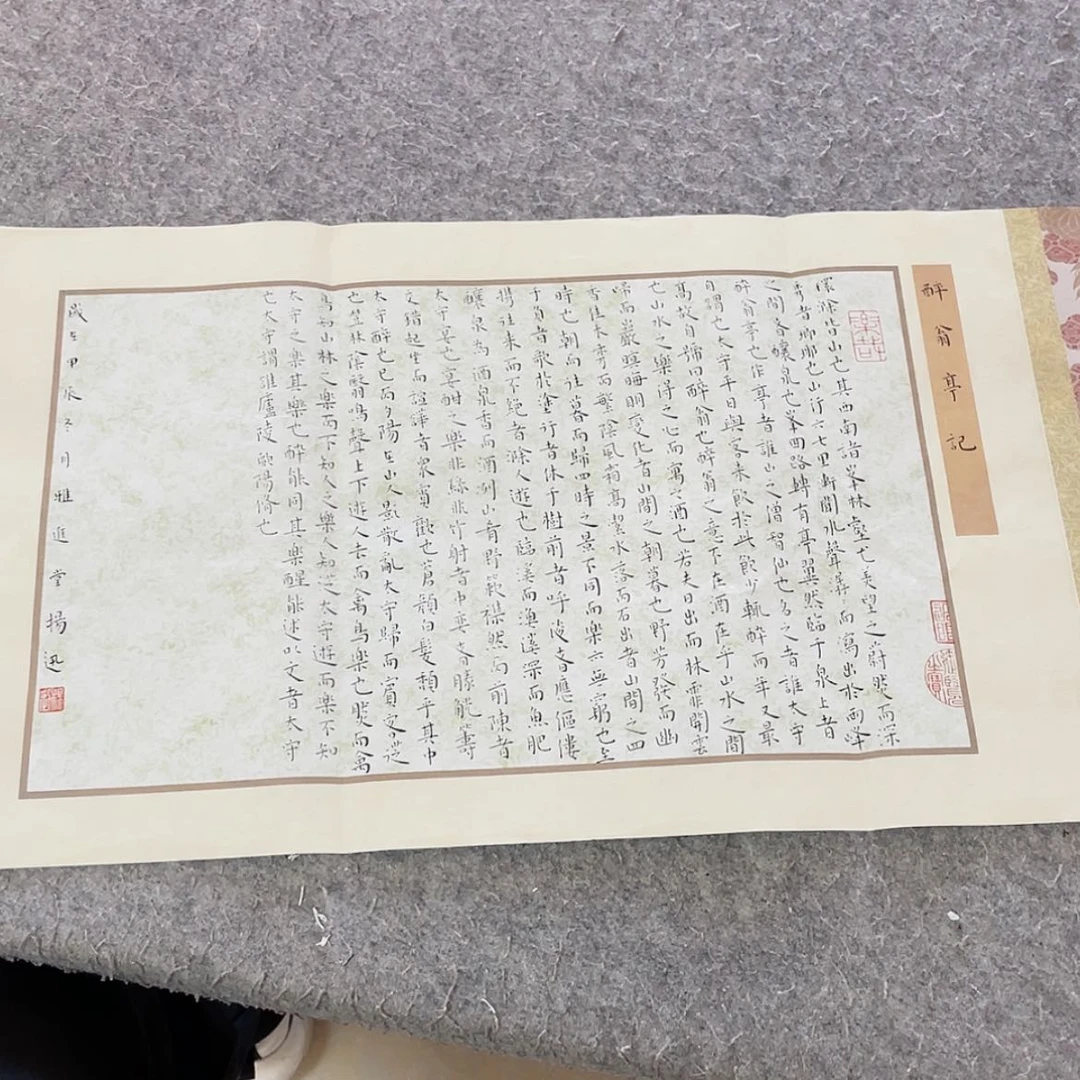 醉翁亭記
環滁皆山也其西南諸峯林壑尤美望之蔚然而深
秀者瑯琊也山行六七里漸聞水聲潺潺而瀉出於兩峰
之間者釀泉也峯回路轉有亭翼然臨于泉上者
醉翁亭也作亭者誰山之僧智仙也名之者誰太守
自謂也太守平日與客来飲於此飲少輒醉而年又最
高故自號曰醉翁也醉翁之意不在酒在乎山水之間
也山水之樂得之心而寓之酒也若夫日出而林霏開雲
歸而巖暝晦明變化者山間之朝暮也野芳發而幽
香佳木秀而繁陰風霜高潔水落而石出者山間之四
時也朝而往暮而歸四時之景不同而樂亦無窮也至
于負者歌於塗行者休于樹前者呼後者應傴僂
提往来而不絕者滁人遊也臨溪而漁溪深而魚肥
釀泉為酒泉香而酒洌山肴野蔌襍然而前陳者
太守宴也宴酣之樂非絲非竹射者中弈者勝觥籌
交錯起坐而諠譁者衆賓歡也蒼顏白髮頹乎其中
太守醉也已而夕陽在山人影散亂太守歸而賓客從
也樹林陰翳鳴聲上下遊人去而禽鳥樂也然而禽
鳥知山林之樂而不知人之樂人知從太守遊而樂不知
太守之樂其樂也醉能同其樂醒能述以文者太守
也太守謂誰廬陵歐陽脩也
歲在甲辰冬月雅進堂揚迅